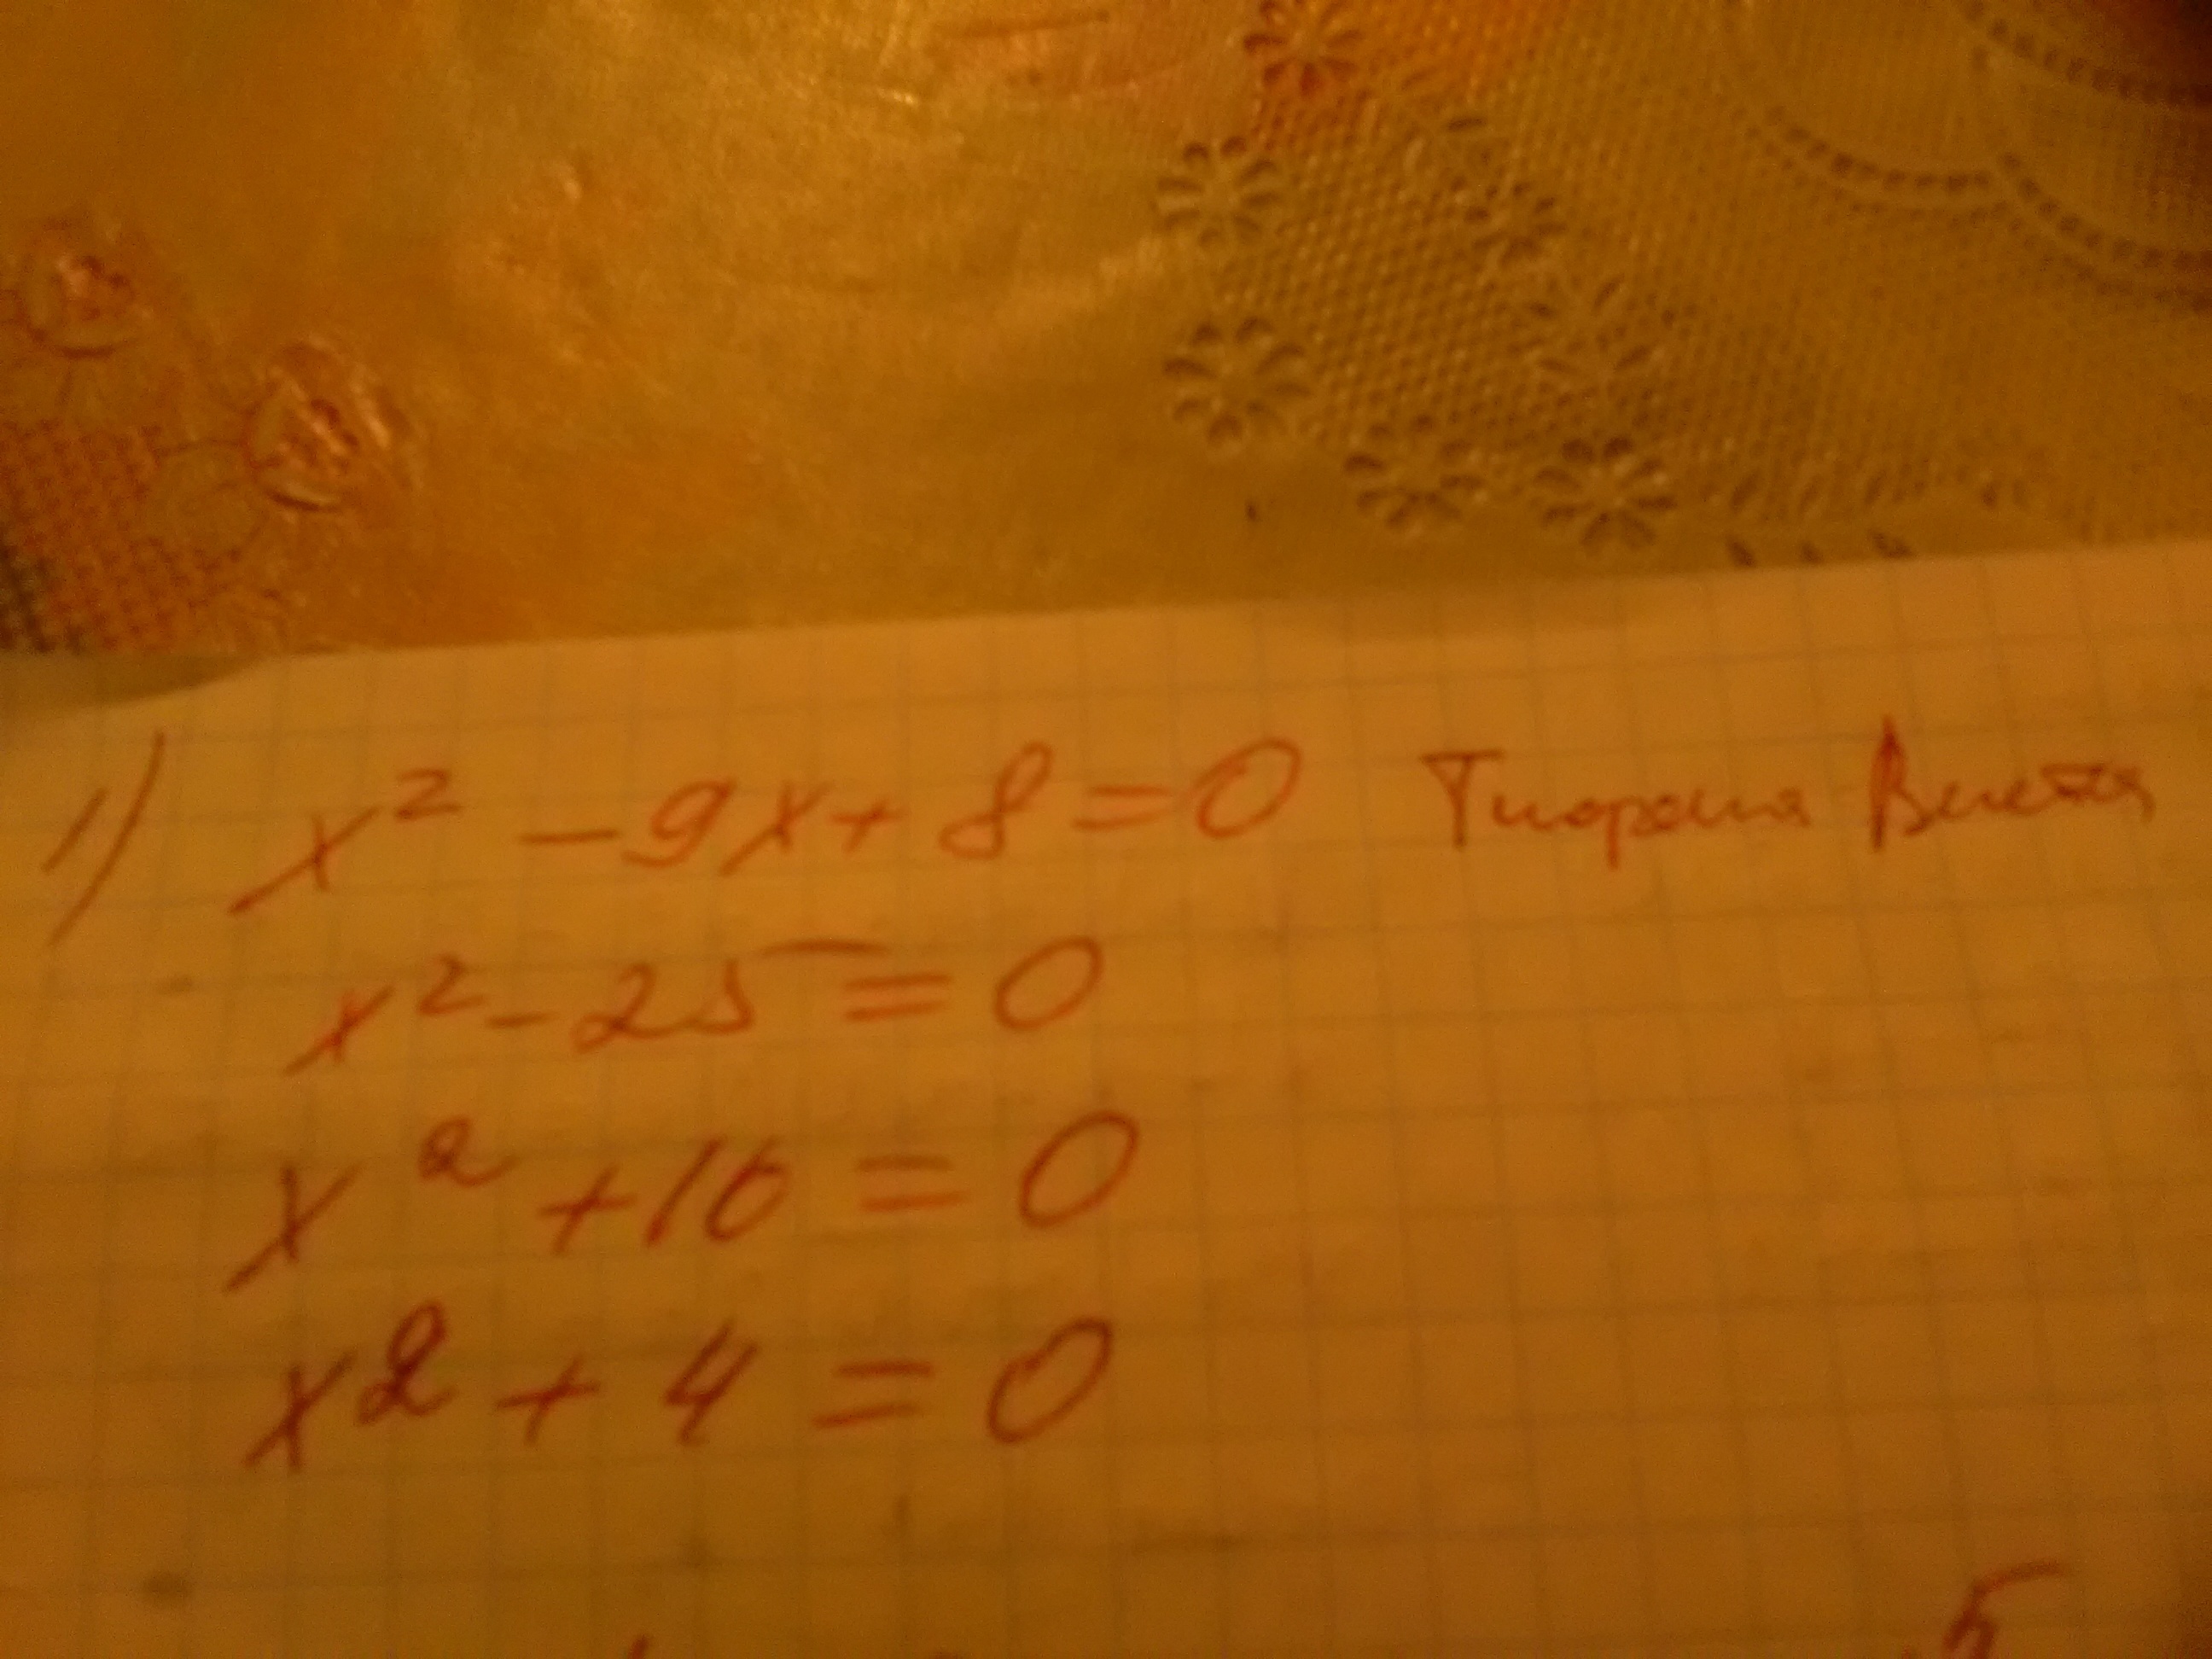 1) x² - 9x + 8 = 0 Тиорема Виета
x² - 25 = 0
x² + 16 = 0
x² + 4 = 0
5